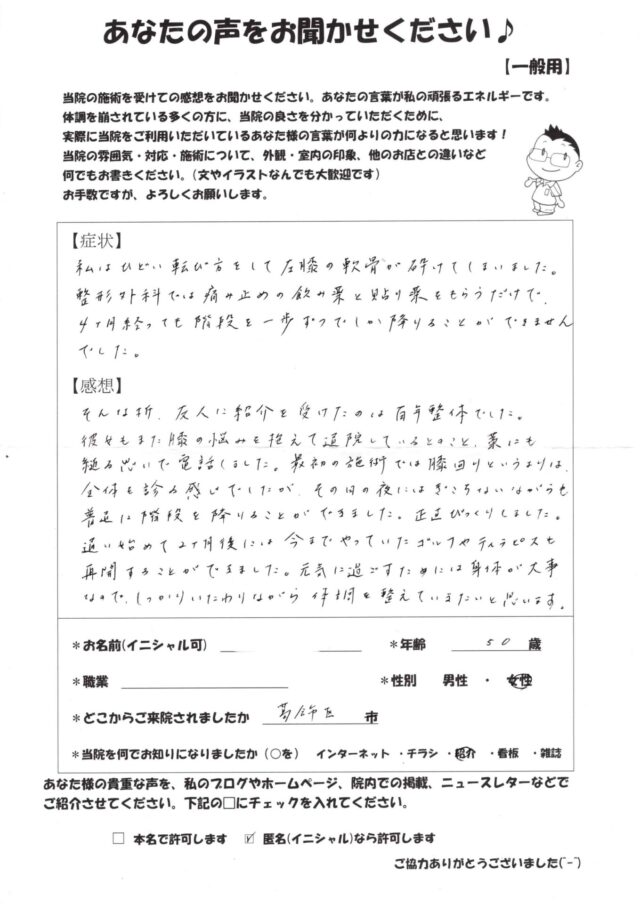 あなたの声をお聞かせください♪
【一般用】
当院の施術を受けての感想をお聞かせください。あなたの言葉が私の頑張るエネルギーです。
体調を崩されている多くの方に、当院の良さを分かっていただくために、
実際に当院をご利用いただいているあなた様の言葉が何よりの力になると思います！
当院の雰囲気・対応・施術について、外観・室内の印象、他のお店との違いなど
何でもお書きください。（文やイラストなんでも大歓迎です）
お手数ですが、よろしくお願いします。
【症状】
私はひどい転び方をして左膝の軟骨が砕けてしまいました。
整形外科では痛み止めの飲み薬と貼り薬をもらうだけで、
4ヶ月経っても階段を一歩ずつでしか降りることができません
でした。
【感想】
そんな折、友人に紹介を受けたのは百年整体でした。
彼女もまた膝の悩みを抱えて通院しているとのこと、藁にも
縋る思いで電話しました。最初の施術では膝回りというよりは、
全体を診る感じでしたが、その日の夜にはぎこちないながらも
普通に階段を降りることができました。正直びっくりしました。
通い始めて2ヶ月後には今までやっていたゴルフやピラティスも
再開することができました。元気に過ごすためには身体が大事
なので、しっかりいたわりながら体調を整えていきたいと思います。
＊お名前(イニシャル可)
＊年齢 50 歳
＊職業
＊性別 男性 ・ 女性
＊どこからご来院されましたか 葛飾区 市
＊当院を何でお知りになりましたか（○を） インターネット ・チラシ ・紹介 ・看板 ・雑誌
あなた様の貴重な声を、私のブログやホームページ、院内での掲載、ニュースレターなどで
ご紹介させてください。下記の□にチェックを入れてください。
□ 本名で許可します ☑ 匿名(イニシャル)なら許可します
ご協力ありがとうございました(^-^)